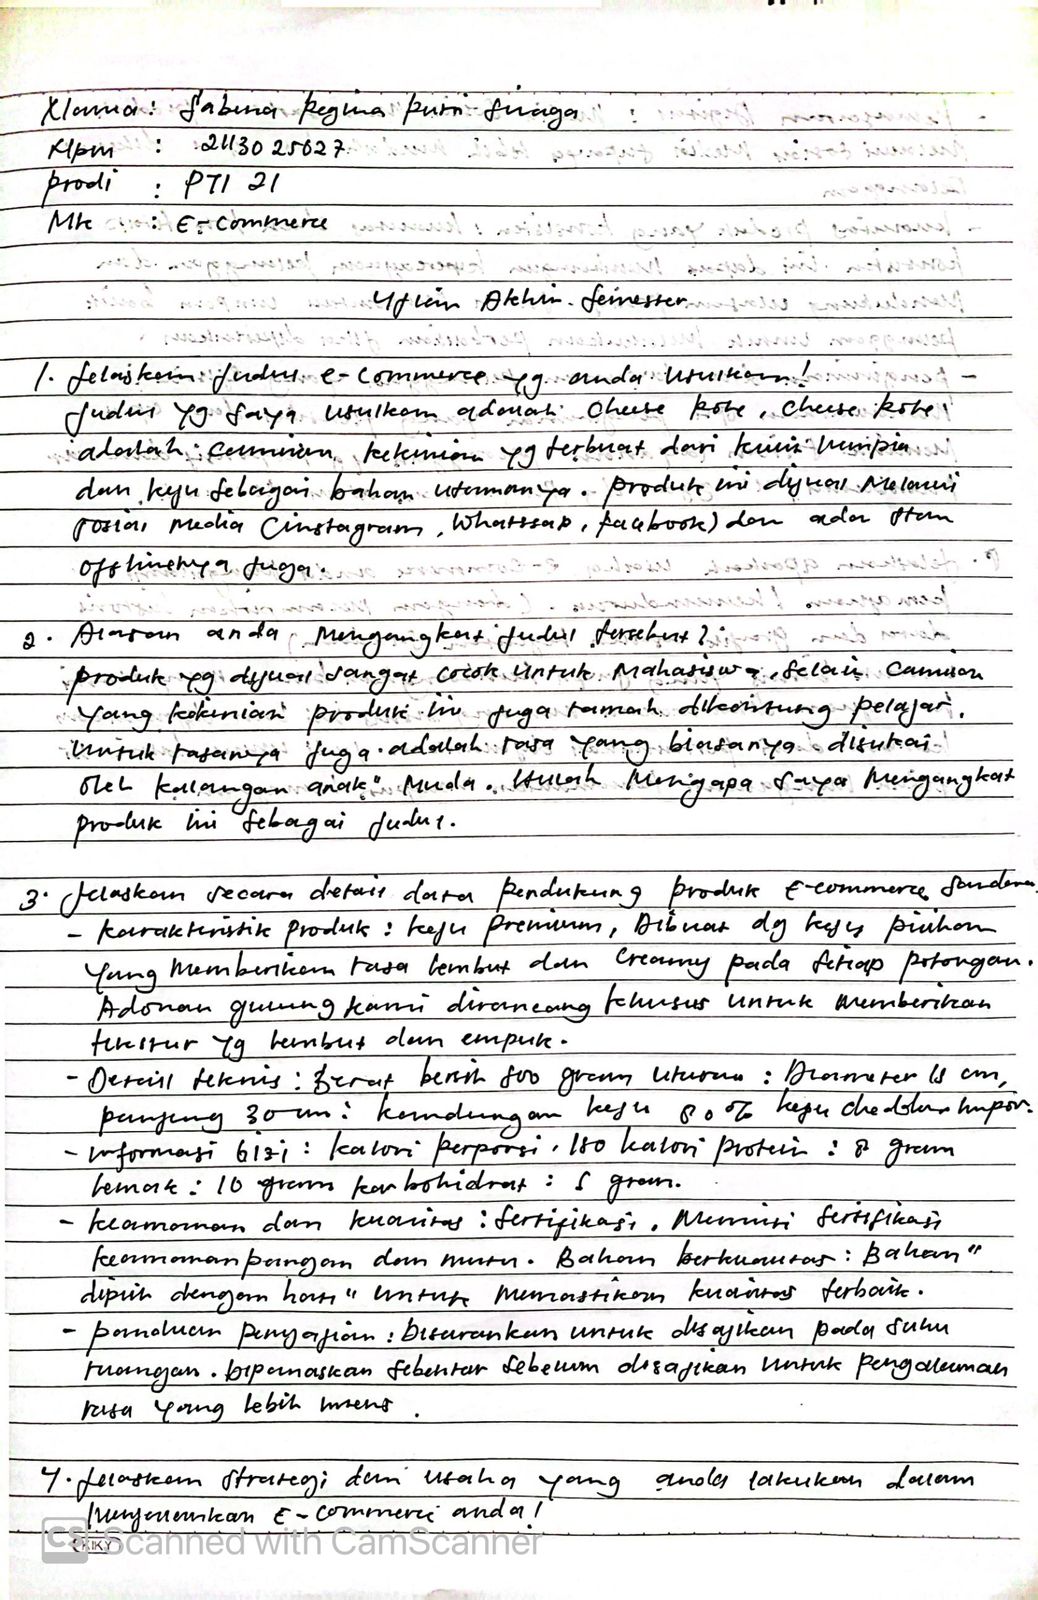 Nama : Sabina Regina Putri Sinaga
Npm : 2113025027
Prodi : PTI 21
Mk : E-Commerce
Ujian Akhir Semester
1. Jelaskan judul e-commerce yg anda usulkan!
Judul yg saya usulkan adalah cheese kole, cheese kole
adalah cemilan kekinian yg terbuat dari kulit lumpia
dan keju sebagai bahan utamanya. Produk ini dijual melalui
sosial media (instagram, whatssap, facebook) dan ada stan
offlinenya juga.
2. Alasan anda mengangkat judul tersebut?
produk yg dijual sangat cocok untuk Mahasiswa, selain camilan
yang kekinian produk ini juga ramah dikantung pelajar.
untuk rasanya juga adalah rasa yang biasanya disukai
oleh kalangan anak" muda. Itulah mengapa saya mengangkat
produk ini sebagai judul.
3. Jelaskan secara detail data pendukung produk E-commerce saudara
- karakteristik produk : keju premium, Dibuat dg keju pilihan
yang memberikan rasa lembut dan creamy pada setiap potongan.
Adonan gulung kami dirancang khusus untuk memberikan
tekstur yg lembut dan empuk.
- Detail teknis : Berat bersih 500 gram ukuran : Diameter 15 cm,
panjang 30 cm : kandungan keju 80% keju cheddar impor.
- informasi Gizi : kalori perporsi . 150 kalori protein : 8 gram
lemak : 10 gram karbohidrat : 5 gram.
- keamanan dan kualitas : Sertifikasi . Memiliki sertifikasi
keamanan pangan dan mutu. Bahan berkualitas : Bahan"
dipilih dengan hati" untuk memastikan kualitas terbaik.
- panduan penyajian : Disarankan untuk disajikan pada suhu
ruangan. Dipanaskan sebentar sebelum disajikan untuk pengalaman
rasa yang lebih intens.
4. Jelaskan strategi dari usaha yang anda lakukan dalam
menjalankan E-commerce anda!
KIKY
CS Scanned with CamScanner